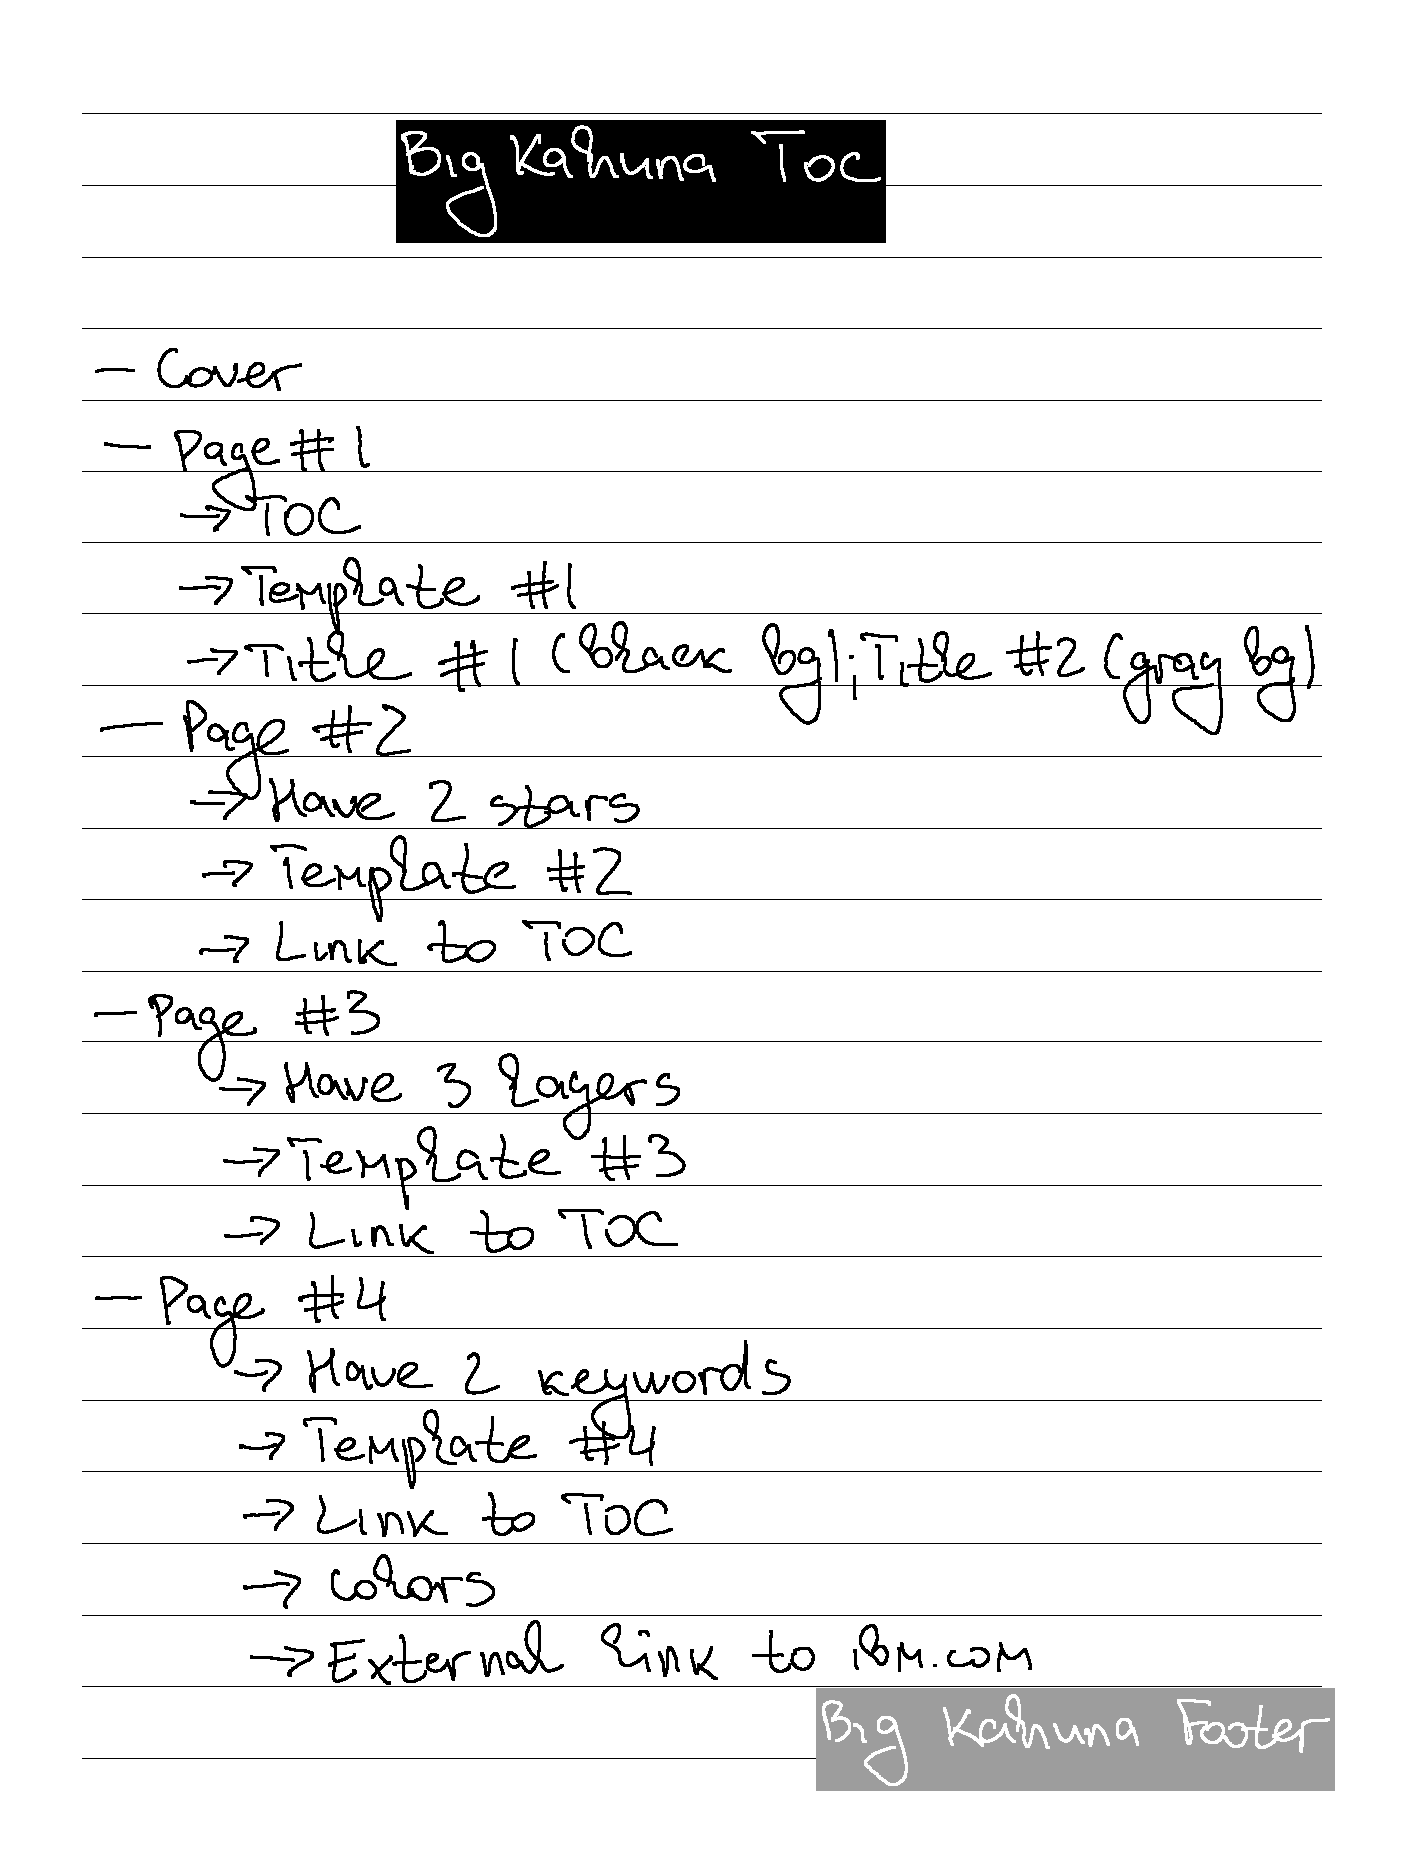 Big Kahuna TOC
— Cover
— Page #1
→ TOC
→ Template #1
→ Title #1 (black bg); Title #2 (gray bg)
— Page #2
→ Have 2 stars
→ Template #2
→ Link to TOC
— Page #3
→ Have 3 layers
→ Template #3
→ Link to TOC
— Page #4
→ Have 2 keywords
→ Template #4
→ Link to TOC
→ Colors
→ External link to ibm.com
Big Kahuna Footer